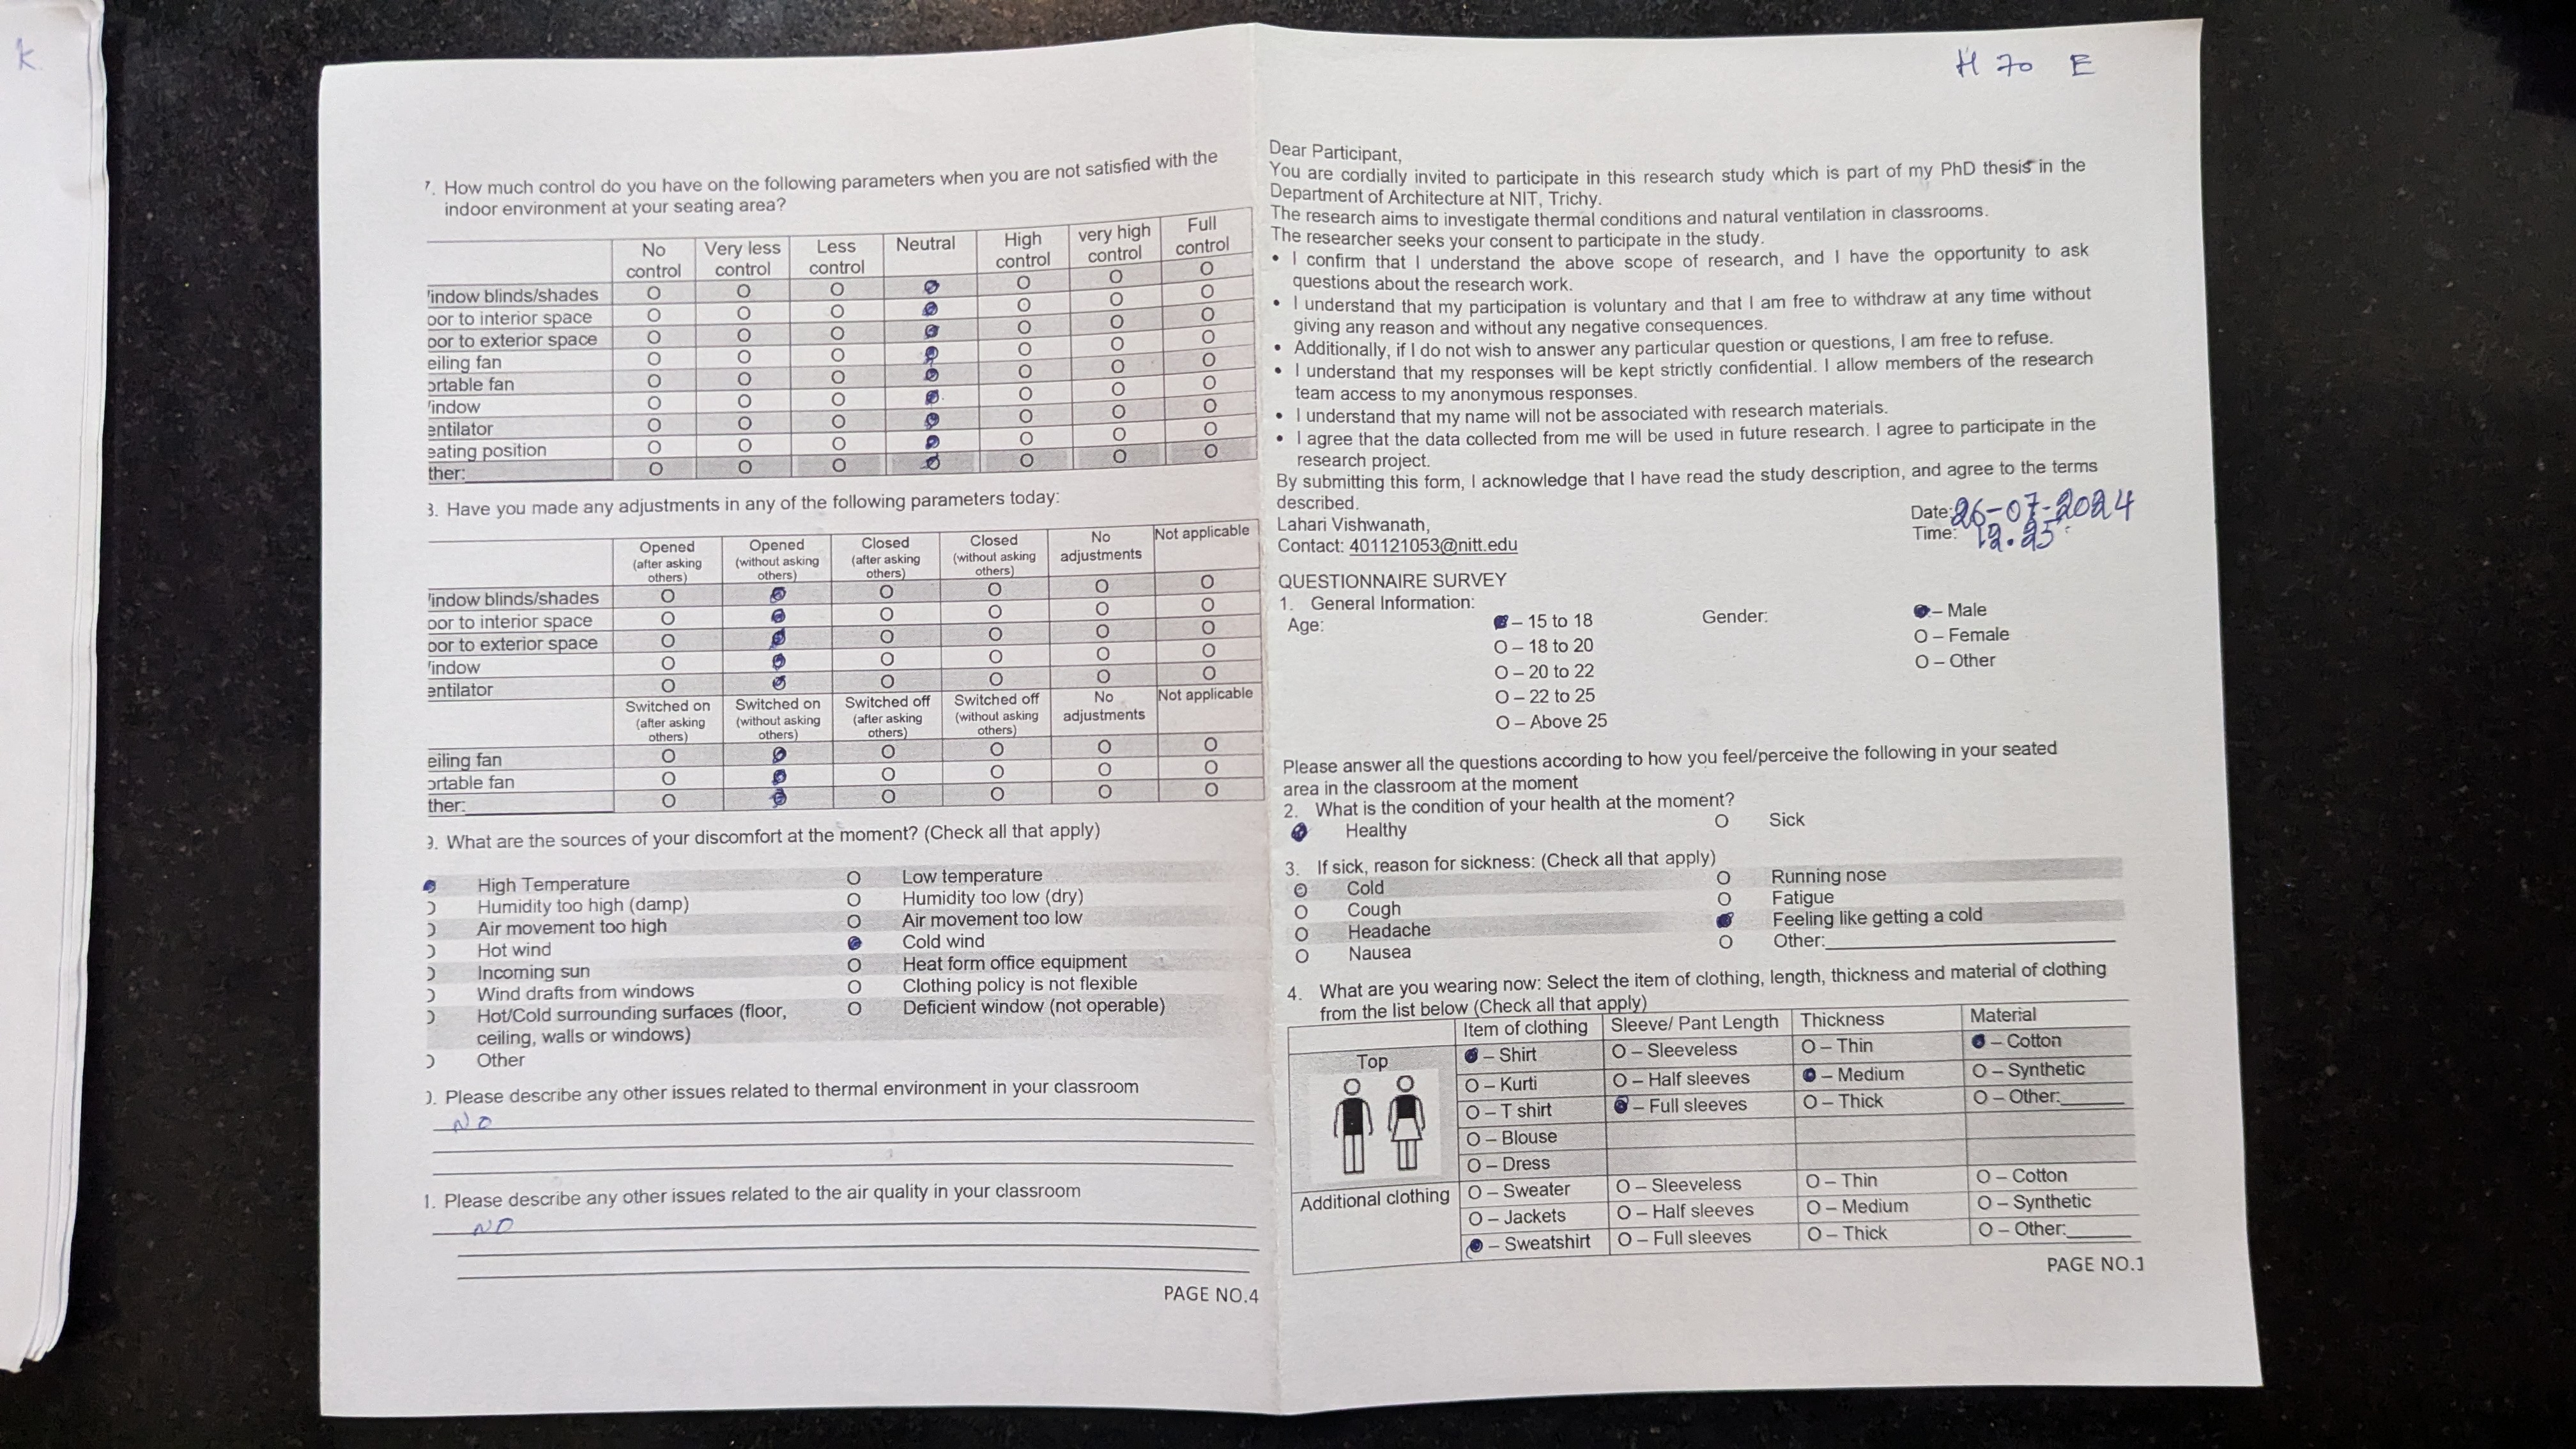 k
7. How much control do you have on the following parameters when you are not satisfied with the
indoor environment at your seating area?
No control Very less control Less control Neutral High control very high control Full control
indow blinds/shades O O O O O O
oor to interior space O O O O O O
oor to exterior space O O O O O O
eiling fan O O O O O O
ortable fan O O O O O O
indow O O O O O O
entilator O O O O O O
eating position O O O O O O
ther: O O O O O O
3. Have you made any adjustments in any of the following parameters today:
Opened (after asking others) Opened (without asking others) Closed (after asking others) Closed (without asking others) No adjustments Not applicable
indow blinds/shades O O O O O
oor to interior space O O O O O
oor to exterior space O O O O O
indow O O O O O
entilator O O O O O
Switched on (after asking others) Switched on (without asking others) Switched off (after asking others) Switched off (without asking others) No adjustments Not applicable
eiling fan O O O O O
ortable fan O O O O O
ther: O O O O O
9. What are the sources of your discomfort at the moment? (Check all that apply)
High Temperature O Low temperature
Humidity too high (damp) O Humidity too low (dry)
Air movement too high O Air movement too low
Hot wind Cold wind
Incoming sun O Heat form office equipment
Wind drafts from windows O Clothing policy is not flexible
Hot/Cold surrounding surfaces (floor, O Deficient window (not operable)
ceiling, walls or windows)
Other
0. Please describe any other issues related to thermal environment in your classroom
NO
1. Please describe any other issues related to the air quality in your classroom
NO
PAGE NO.4
H 70 E
Dear Participant,
You are cordially invited to participate in this research study which is part of my PhD thesis in the
Department of Architecture at NIT, Trichy.
The research aims to investigate thermal conditions and natural ventilation in classrooms.
The researcher seeks your consent to participate in the study.
• I confirm that I understand the above scope of research, and I have the opportunity to ask
questions about the research work.
• I understand that my participation is voluntary and that I am free to withdraw at any time without
giving any reason and without any negative consequences.
• Additionally, if I do not wish to answer any particular question or questions, I am free to refuse.
• I understand that my responses will be kept strictly confidential. I allow members of the research
team access to my anonymous responses.
• I understand that my name will not be associated with research materials.
• I agree that the data collected from me will be used in future research. I agree to participate in the
research project.
By submitting this form, I acknowledge that I have read the study description, and agree to the terms
described.
Lahari Vishwanath,
Contact: 401121053@nitt.edu
Date: 26-07-2024
Time: 12.25
QUESTIONNAIRE SURVEY
1. General Information:
Age: – 15 to 18 Gender: – Male
O – 18 to 20 O – Female
O – 20 to 22 O – Other
O – 22 to 25
O – Above 25
Please answer all the questions according to how you feel/perceive the following in your seated
area in the classroom at the moment
2. What is the condition of your health at the moment?
Healthy O Sick
3. If sick, reason for sickness: (Check all that apply)
O Cold O Running nose
O Cough O Fatigue
O Headache Feeling like getting a cold
O Nausea O Other:
4. What are you wearing now: Select the item of clothing, length, thickness and material of clothing
from the list below (Check all that apply)
Item of clothing Sleeve/ Pant Length Thickness Material
Top – Shirt O – Sleeveless O – Thin – Cotton
O – Kurti O – Half sleeves – Medium O – Synthetic
O – T shirt – Full sleeves O – Thick O – Other:
O – Blouse
O – Dress
Additional clothing O – Sweater O – Sleeveless O – Thin O – Cotton
O – Jackets O – Half sleeves O – Medium O – Synthetic
– Sweatshirt O – Full sleeves O – Thick O – Other:
PAGE NO.1